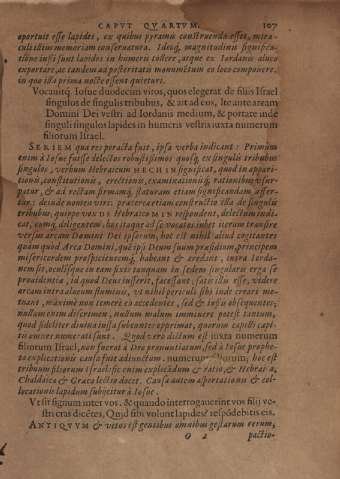 CAPVT QVARTVM. 107
oportuit esse lapides, ex quibus pyramis construenda esset, mira-
culi istius memoriam conseruatura. Ideoq, magnitudinis significa-
tione iussi sunt lapides in humeris tollere, atque ex Iordanis alueo
exportare, ac tandem ad posteritatis monumentum eo loco componere,
in quo illa prima nocte essent quieturi.
Vocauitq́; Iosue duodecim viros, quos elegerat de filiis Israel
singulos de singulis tribubus, & ait ad eos, Ite ante arcam
Domini Dei vestri ad Iordanis medium, & portate inde
singuli singulos lapides in humeris vestris iuxta numerum
filiorum Israel.
SERIEM qua res peracta fuit, ipsa verba indicant: Primùm
enim à Iosue fuisse delectos robustissimos quosq; ex singulis tribubus
singulos, verbum Hebraicum HECHIN significat, quod in appari-
tione, constitutione, erectione, examinationéq; rationibus vsur-
patur, & ad rectam firmamq; staturam etiam significandam, affer-
tur: deinde nouem viri: præterea etiam constructio illa de singulis
tribubus, quippe Hebraico MIN respondent, delectum indi-
cat, eumq; diligentem. hos itaque ad se vocatos iubet iterum transire
versus arcam Domini Dei ipsorum, hoc est nihil aliud cogitantes
quàm quod Arca Domini, quę ipsi Deum suum præsidium, principem
misericordem prospicientemq; habeant & credant, intra Iorda-
nem sit, oculisque in eam fixis tanquam in sedem singularis erga se
prouidentiæ, id quod Deus iusserit, facessant; satis illis esse, videre
arcam intra alueum fluminis, vt nihil periculi sibi inde creari me-
tuant, maximè non temerè eò accedentes, sed & iussis obsequentes;
nullum enim discrimen, nullum malum imminere potest tantum,
quod fideliter diuina iussa subeuntes opprimat, quorum capitis capil-
li omnes numerati sunt. Quod verò dictum est iuxta numerum
filiorum Israel, non fuerat à Deo pronuntiatum, sed à Iosue prophe-
ta explicationis causa fuit adiunctum. numerum hoc est
tribuum filiorum Israel: sic enim explicandum & ratio, & Hebraica,
Chaldaica & Græca lectio docet. Causa autem asportationis & col-
locationis lapidum subijcitur à Iosue.
Vt sit signum inter vos. & quando interrogauerint vos filij ve-
stri cras dicẽtes, Quid sibi volunt lapides? respõdebitis eis.
ANTIQVVM & vitos est gentibus omnibus gestarum rerum,
O 2 pactio-